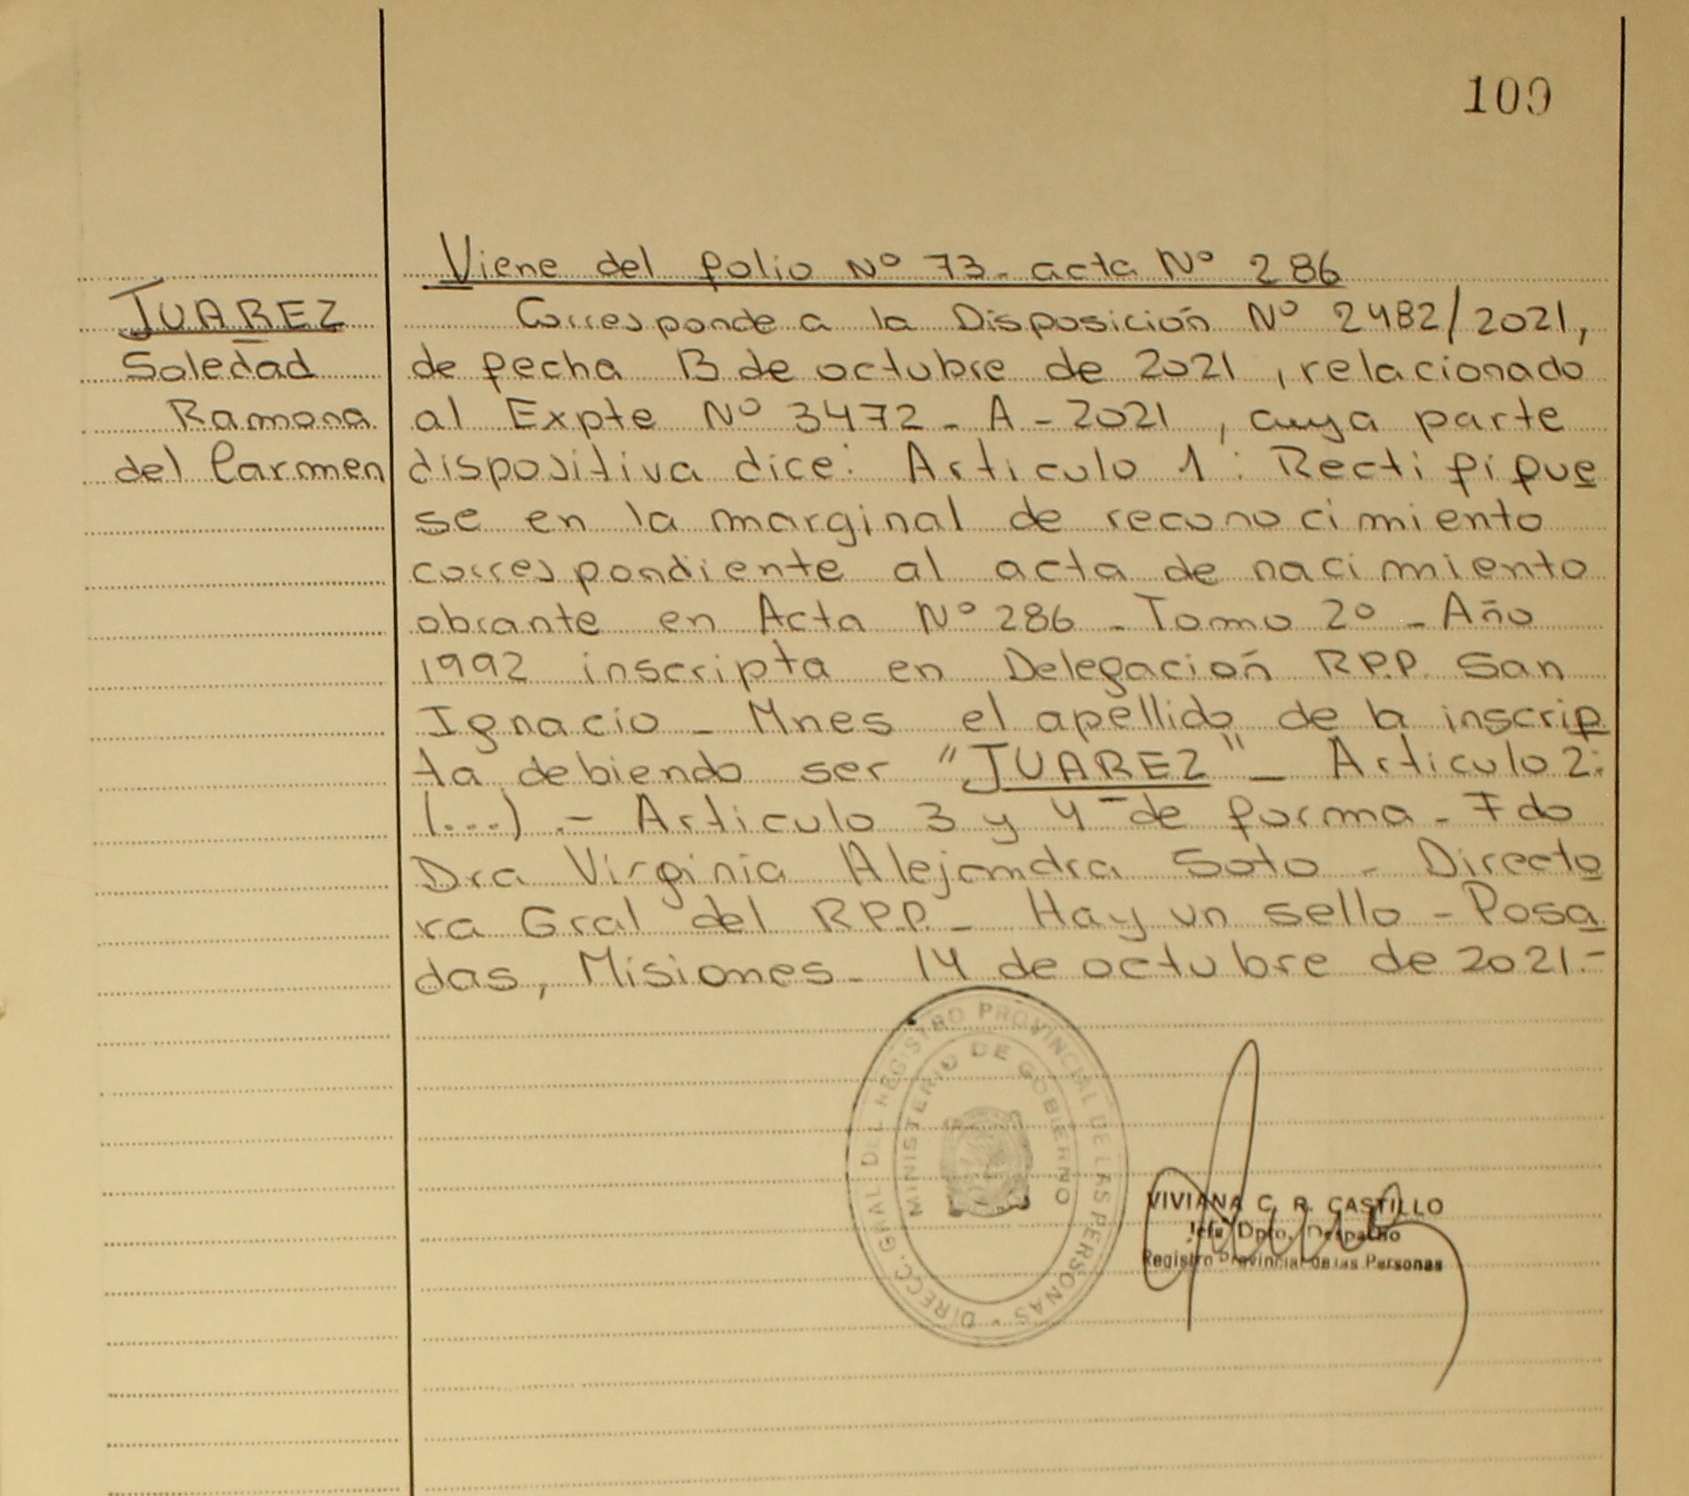 109
Viene del folio Nº 73 - acta Nº 286
JUAREZ
Soledad
Ramona
del Carmen
Corresponde a la Disposición Nº 2482/2021,
de fecha 13 de octubre de 2021, relacionado
al Expte Nº 3472 - A - 2021, cuya parte
dispositiva dice: Articulo 1: Rectifique
se en la marginal de reconocimiento
correspondiente al acta de nacimiento
obrante en Acta Nº 286 - Tomo 2º - Año
1992 inscripta en Delegación RPP. San
Ignacio - Mnes el apellido de la inscrip
ta debiendo ser "JUAREZ" - Articulo 2:
(...) .- Articulo 3 y 4 - de forma - Fdo
Dra Virginia Alejandra Soto - Directo
ra Gral del RPP. - Hay un sello - Posa
das, Misiones - 14 de octubre de 2021.-
DIRECC. GRAL DEL REGISTRO PROVINCIAL DE LAS PERSONAS
MINISTERIO DE GOBIERNO
VIVIANA C. R. CASTILLO
Jefa Dpto. Despacho
Registro Provincial de las Personas